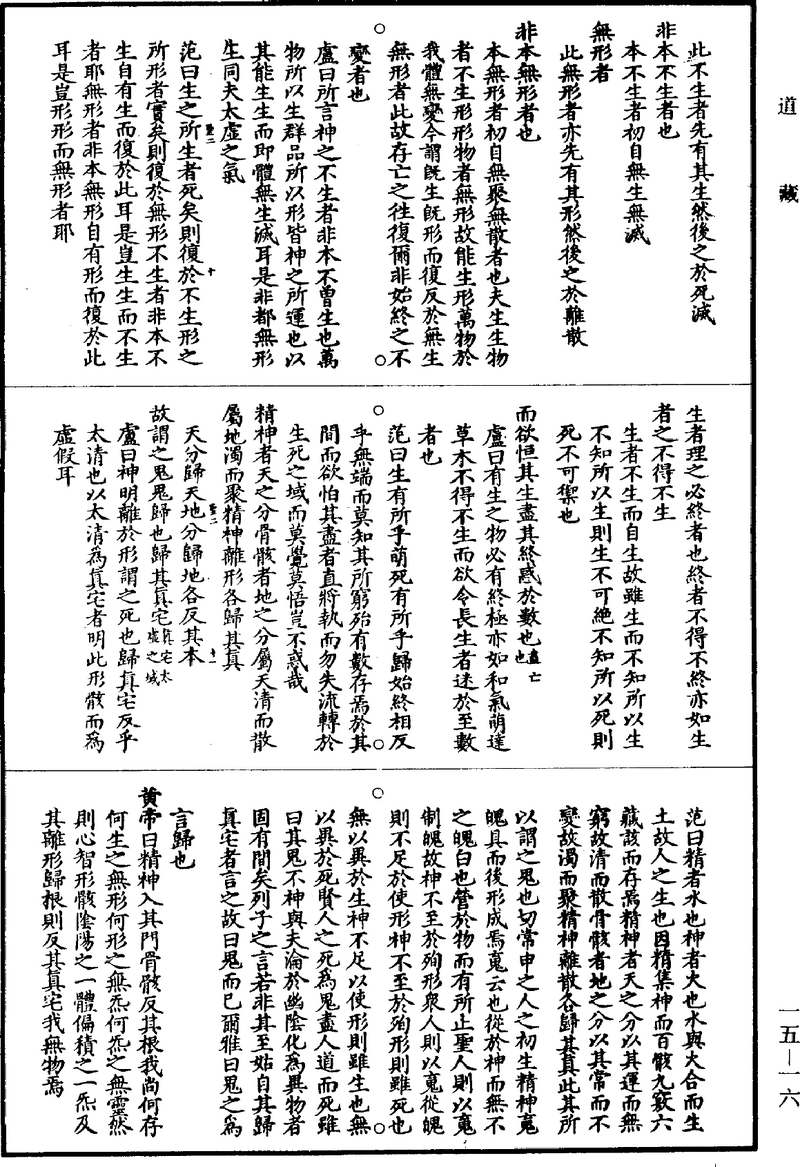 道藏
此不生者先有其生然後之於死滅
非本不生者也
本不生者初自無生無滅
無形者
此無形者亦先有其形然後之於離散
非本無形者也
本無形者初自無聚無散者也夫生生物
者不生形形物者無形故能生形萬物於
我體無變今謂旣生旣形而復反於無生
無形者此故存亡之往復爾非始終之不
變者也
盧曰所言神之不生者非本不曾生也萬
物所以生群品所以形皆神之所運也以
其能生生而即體無生滅耳是非都無形
生同夫太虛之氣
范曰生之所生者死矣則復於不生形之
所形者實矣則復於無形不生者非本不
生自有生而復於此耳是豈生生而不生
者耶無形者非本無形自有形而復於此
耳是豈形形而無形者耶
生者理之必終者也終者不得不終亦如生
者之不得不生
生者不生而自生故雖生而不知所以生
不知所以生則生不可絕不知所以死則
死不可禦也
而欲恒其生盡其終惑於數也畫亡也
盧曰有生之物必有終極亦如和氣萌達
草木不得不生而欲令長生者迷於至數
者也
范曰生有所乎萌死有所乎歸始終相反
乎無端而莫知其所窮殆有數存焉於其
間而欲怕其盡者直將執而勿失流轉於
生死之域而莫覺莫悟豈不惑哉
精神者天之分骨骸者地之分屬天清而散
屬地濁而聚精神離形各歸其真
天分歸天地分歸地各反其本
故謂之鬼鬼歸也歸其真宅真宅太虛之域
盧曰神明離於形謂之死也歸真宅反乎
太清也以太清爲真宅者明此形骸而爲
虛假耳
范曰精者水也神者火也水與火合而生
土故人之生也因精集神而百骸九竅六
藏該而存焉精神者天之分以其運而無
窮故清而散骨骸者地之分以其常而不
變故濁而聚精神離散各歸其真此其所
以謂之鬼也切常申之人之初生精神䰟
魄具而後形成焉䰟云也從於神而無不
之魄白也營於物而有所止聖人則以䰟
制魄故神不至於殉形衆人則以䰟從魄
則不足於使形神不至於殉形則雖死也
無以異於生神不足以使形則雖生也無
以異於死賢人之死爲鬼盡人道而死雖
曰其鬼不神與夫淪於幽陰化爲異物者
固有間矣列子之言若非其至姑自其歸
真宅者言之故曰鬼而已爾雅曰鬼之爲
言歸也
黄帝曰精神入其門骨骸反其根我尚何存
何生之無形何形之無炁何炁之無靈然
則心智形骸陰陽之一體偏積之一炁及
其離形歸根則反其真宅我無物焉
一五—一六